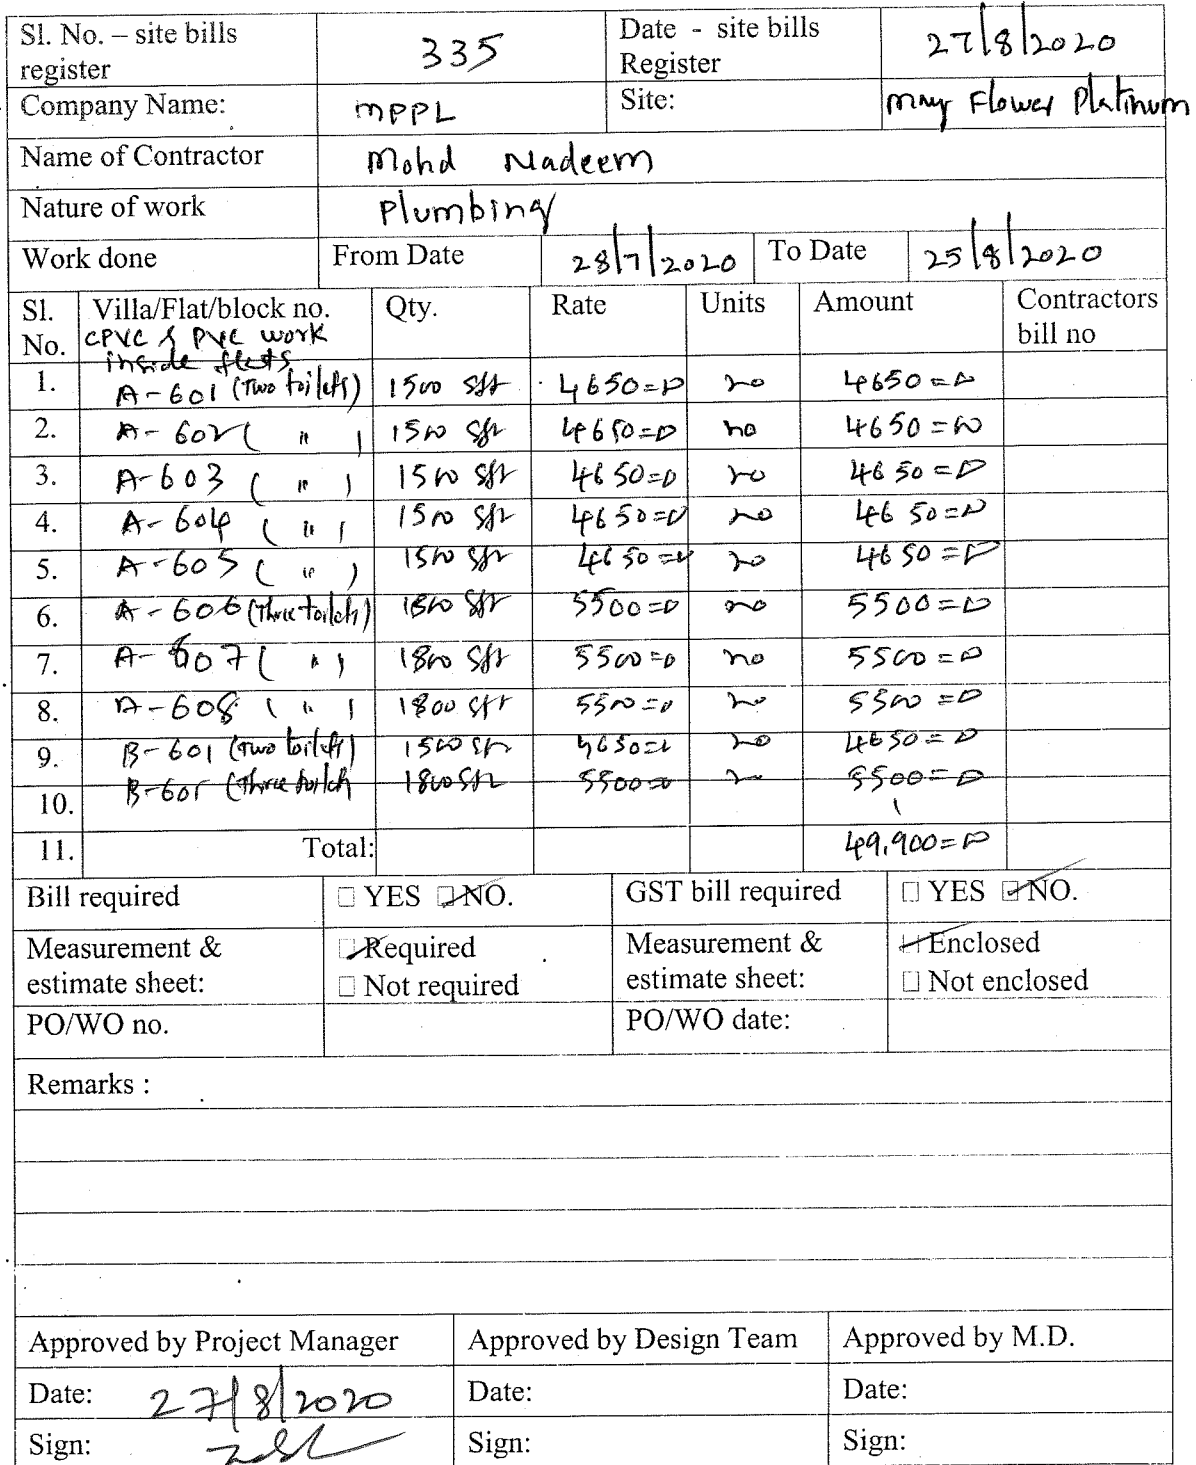 Sl. No. – site bills register 335 Date - site bills Register 27/8/2020
Company Name: MPPL Site: May Flower Platinum
Name of Contractor Mohd Nadeem
Nature of work Plumbing
Work done From Date 28/7/2020 To Date 25/8/2020
Sl. No. Villa/Flat/block no. Qty. Rate Units Amount Contractors bill no
CPVC & PVC work
inside flats
1. A-601 (Two toilets) 1500 sft 4650=00 no 4650=00
2. A-602 ( " ) 1500 sft 4650=00 no 4650=00
3. A-603 ( " ) 1500 sft 4650=00 no 4650=00
4. A-604 ( " ) 1500 sft 4650=00 no 4650=00
5. A-605 ( " ) 1500 sft 4650=00 no 4650=00
6. A-606 (Three toilets) 1800 sft 5500=00 no 5500=00
7. A-607 ( " ) 1800 sft 5500=00 no 5500=00
8. A-608 ( " ) 1800 sft 5500=00 no 5500=00
9. B-601 (Two toilets) 1500 sft 4650=00 no 4650=00
10. (Three toilets 1800 sft 5500=00 no 5500=00
11. Total: 49,900=00
Bill required □ YES □ NO. GST bill required □ YES □ NO.
Measurement & estimate sheet: □ Required □ Not required Measurement & estimate sheet: □ Enclosed □ Not enclosed
PO/WO no. PO/WO date:
Remarks :
Approved by Project Manager Approved by Design Team Approved by M.D.
Date: 27/8/2020 Date: Date:
Sign: Sign: Sign: